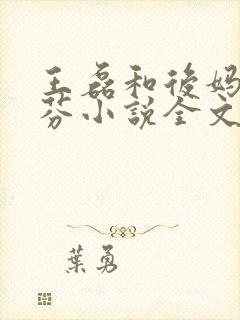 王磊和後妈
芬小說全文
葉勇